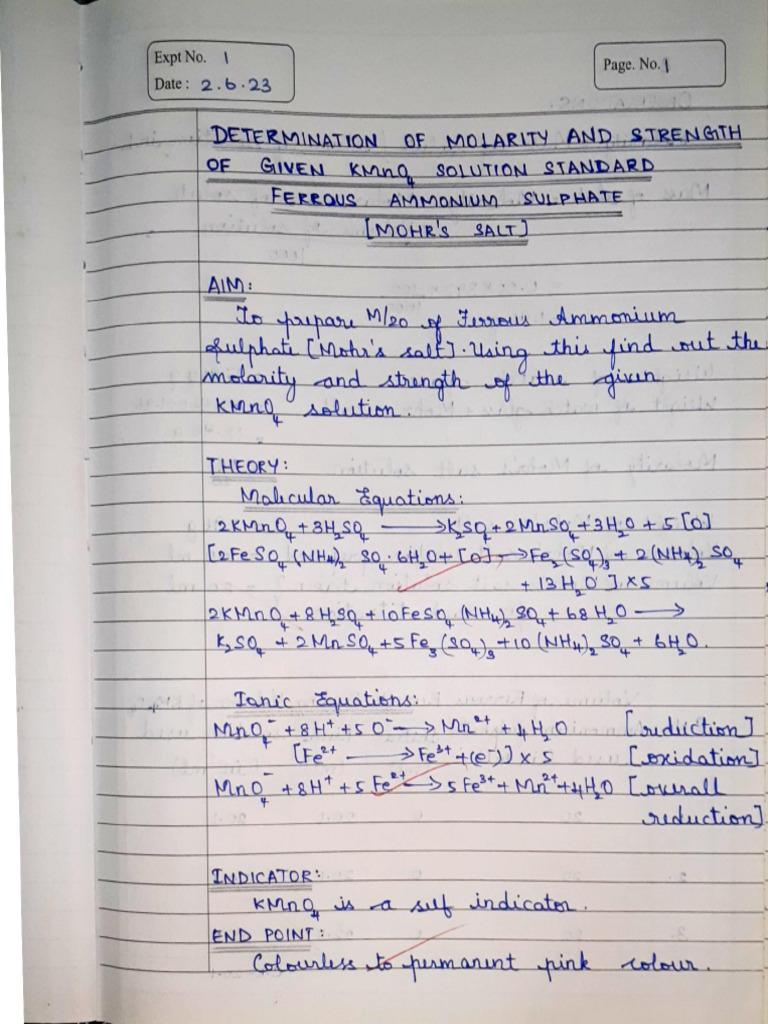 Expt No. 1
Date : 2.6.23
Page. No. 1
DETERMINATION OF MOLARITY AND STRENGTH
OF GIVEN KMnO₄ SOLUTION STANDARD
FERROUS AMMONIUM SULPHATE
[MOHR'S SALT]
AIM:
To prepare M/20 of Ferrous Ammonium
Sulphate [Mohr's salt]. Using this find out the
molarity and strength of the given
KMnO₄ solution.
THEORY:
Malicular Equations:
2KMnO₄ + 3H₂SO₄ ⟶ K₂SO₄ + 2MnSO₄ + 3H₂O + 5[O]
[2FeSO₄ (NH₄)₂ SO₄ · 6H₂O + [O] ⟶ Fe₂(SO₄)₃ + 2(NH₄)₂ SO₄
+ 13H₂O ] × 5
2KMnO₄ + 8H₂SO₄ + 10FeSO₄ (NH₄)₂ SO₄ + 68H₂O ⟶
K₂SO₄ + 2MnSO₄ + 5Fe₃(SO₄)₃ + 10(NH₄)₂SO₄ + 6H₂O.
Ionic Equations:
MnO₄⁻ + 8H⁺ + 5O⁻ ⟶ Mn²⁺ + 4H₂O [reduction]
[Fe²⁺ ⟶ Fe³⁺ + (e⁻)] × 5 [oxidation]
MnO₄⁻ + 8H⁺ + 5Fe²⁺ ⟶ 5Fe³⁺ + Mn²⁺ + 4H₂O [overall
reduction]
INDICATOR:
KMnO₄ is a self indicator.
END POINT:
Colourless to permanent pink colour.